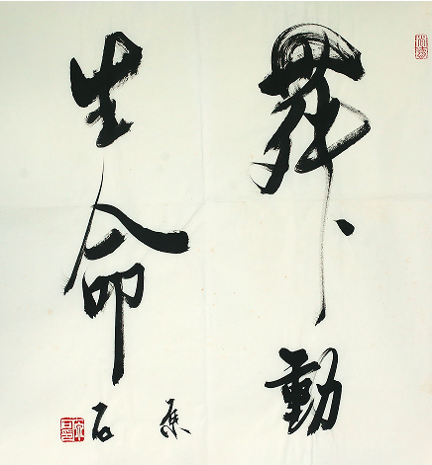 舞動
生命
石